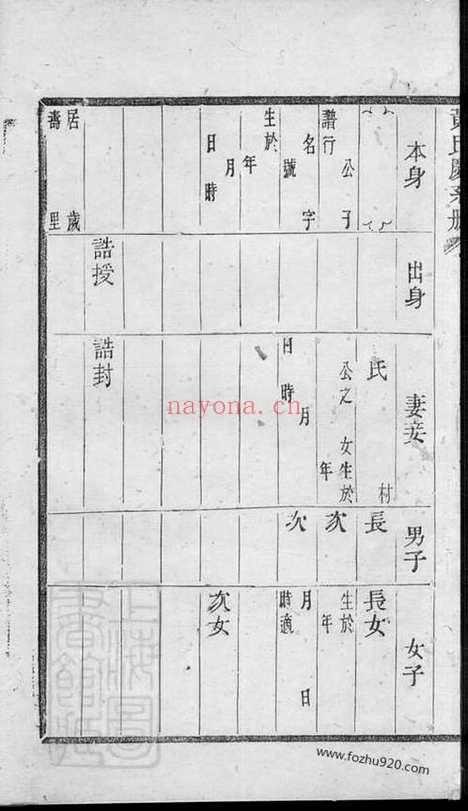 黃氏慶系冊
本身
譜行 公子
名字
號
生於 年
月
日 時
居 歲
壽 里
出身
誥授
妻妾
氏 村
公之 女生於
年
月
日 時
誥封
男子
長
次
次
女子
長女
生於
年
月 日
時適
次女
nayona.cn
www.fozhu920.com